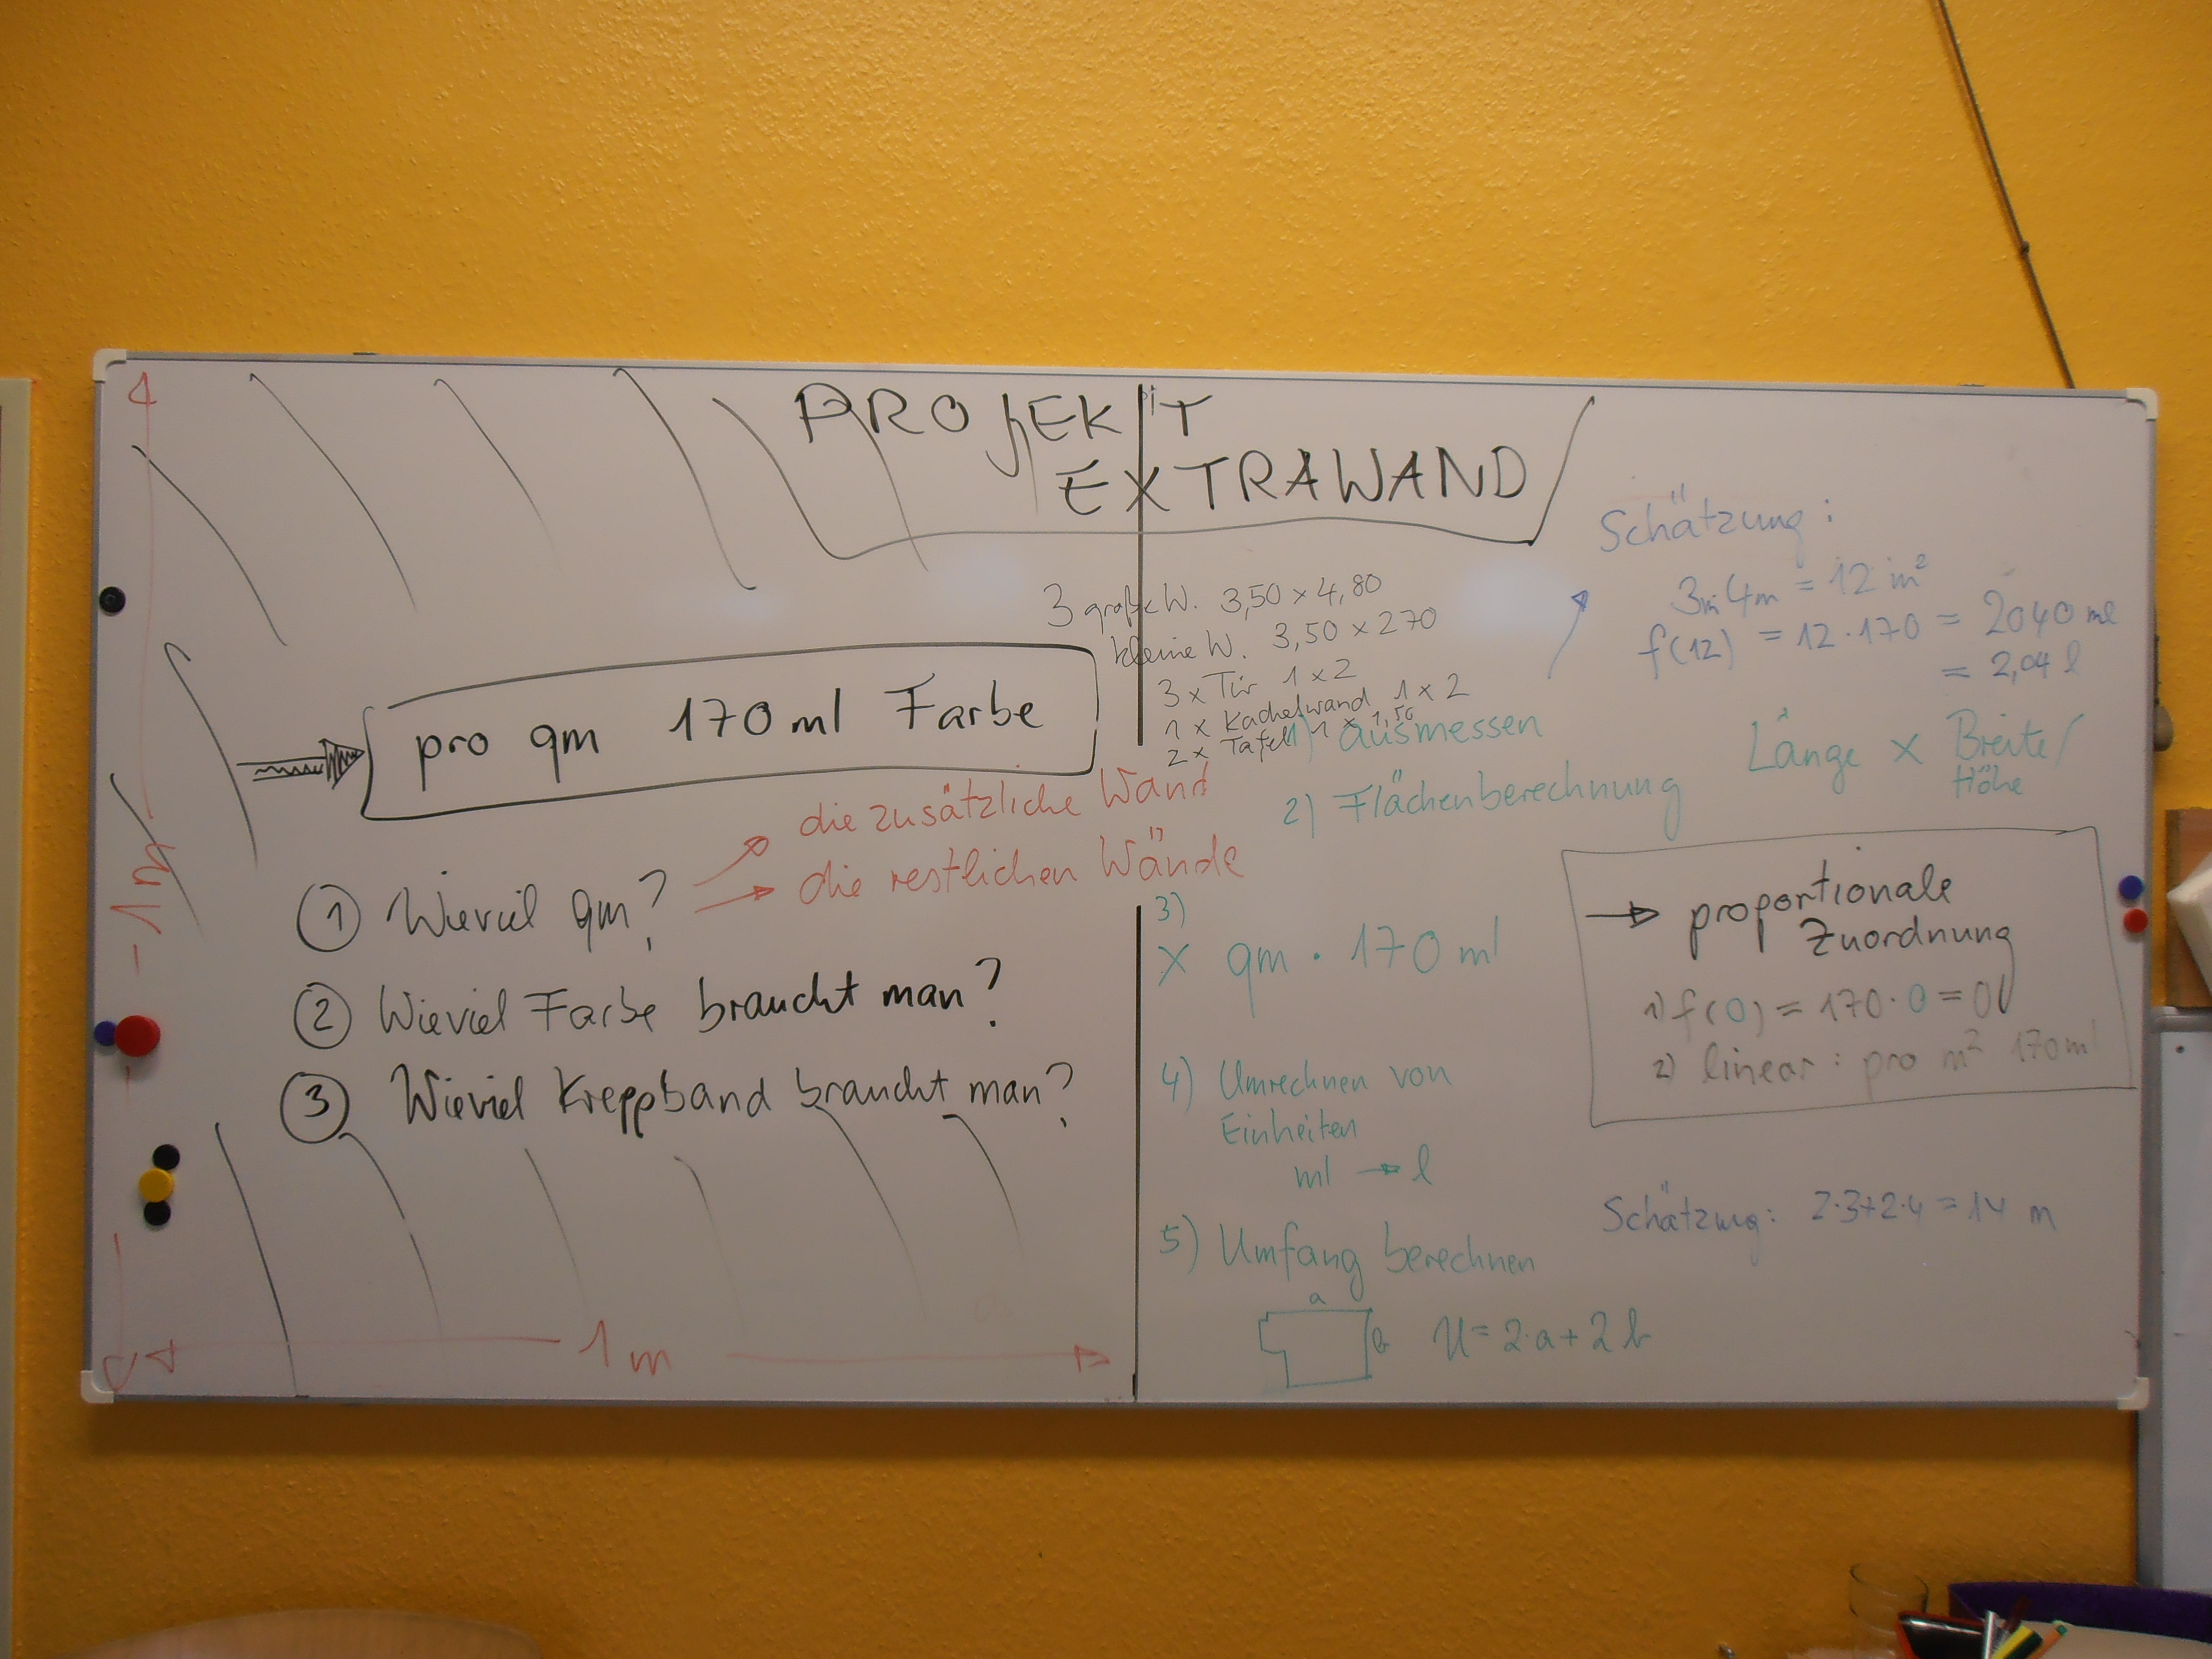 PROJEKT
EXTRAWAND
3 große W. 3,50 x 4,80
kleine W. 3,50 x 270
3 x Tür 1 x 2
1 x Kachelwand 1 x 2
2 x Tafel 1 x 1,50
pro qm 170 ml Farbe
① Wieviel qm?
die zusätzliche Wand
die restlichen Wände
② Wieviel Farbe braucht man?
③ Wieviel Kreppband braucht man?
1m
1m
1) Ausmessen
2) Flächenberechnung
Länge x Breite/
Höhe
3)
x qm · 170 ml
4) Umrechnen von
Einheiten
ml → l
5) Umfang berechnen
a
b
U = 2·a + 2 b
Schätzung:
3m 4m = 12 m²
f(12) = 12·170 = 2040 ml
= 2,04 l
→ proportionale
Zuordnung
1) f(0) = 170·0 = 0
2) linear: pro m² 170ml
Schätzung: 2·3+2·4 = 14 m